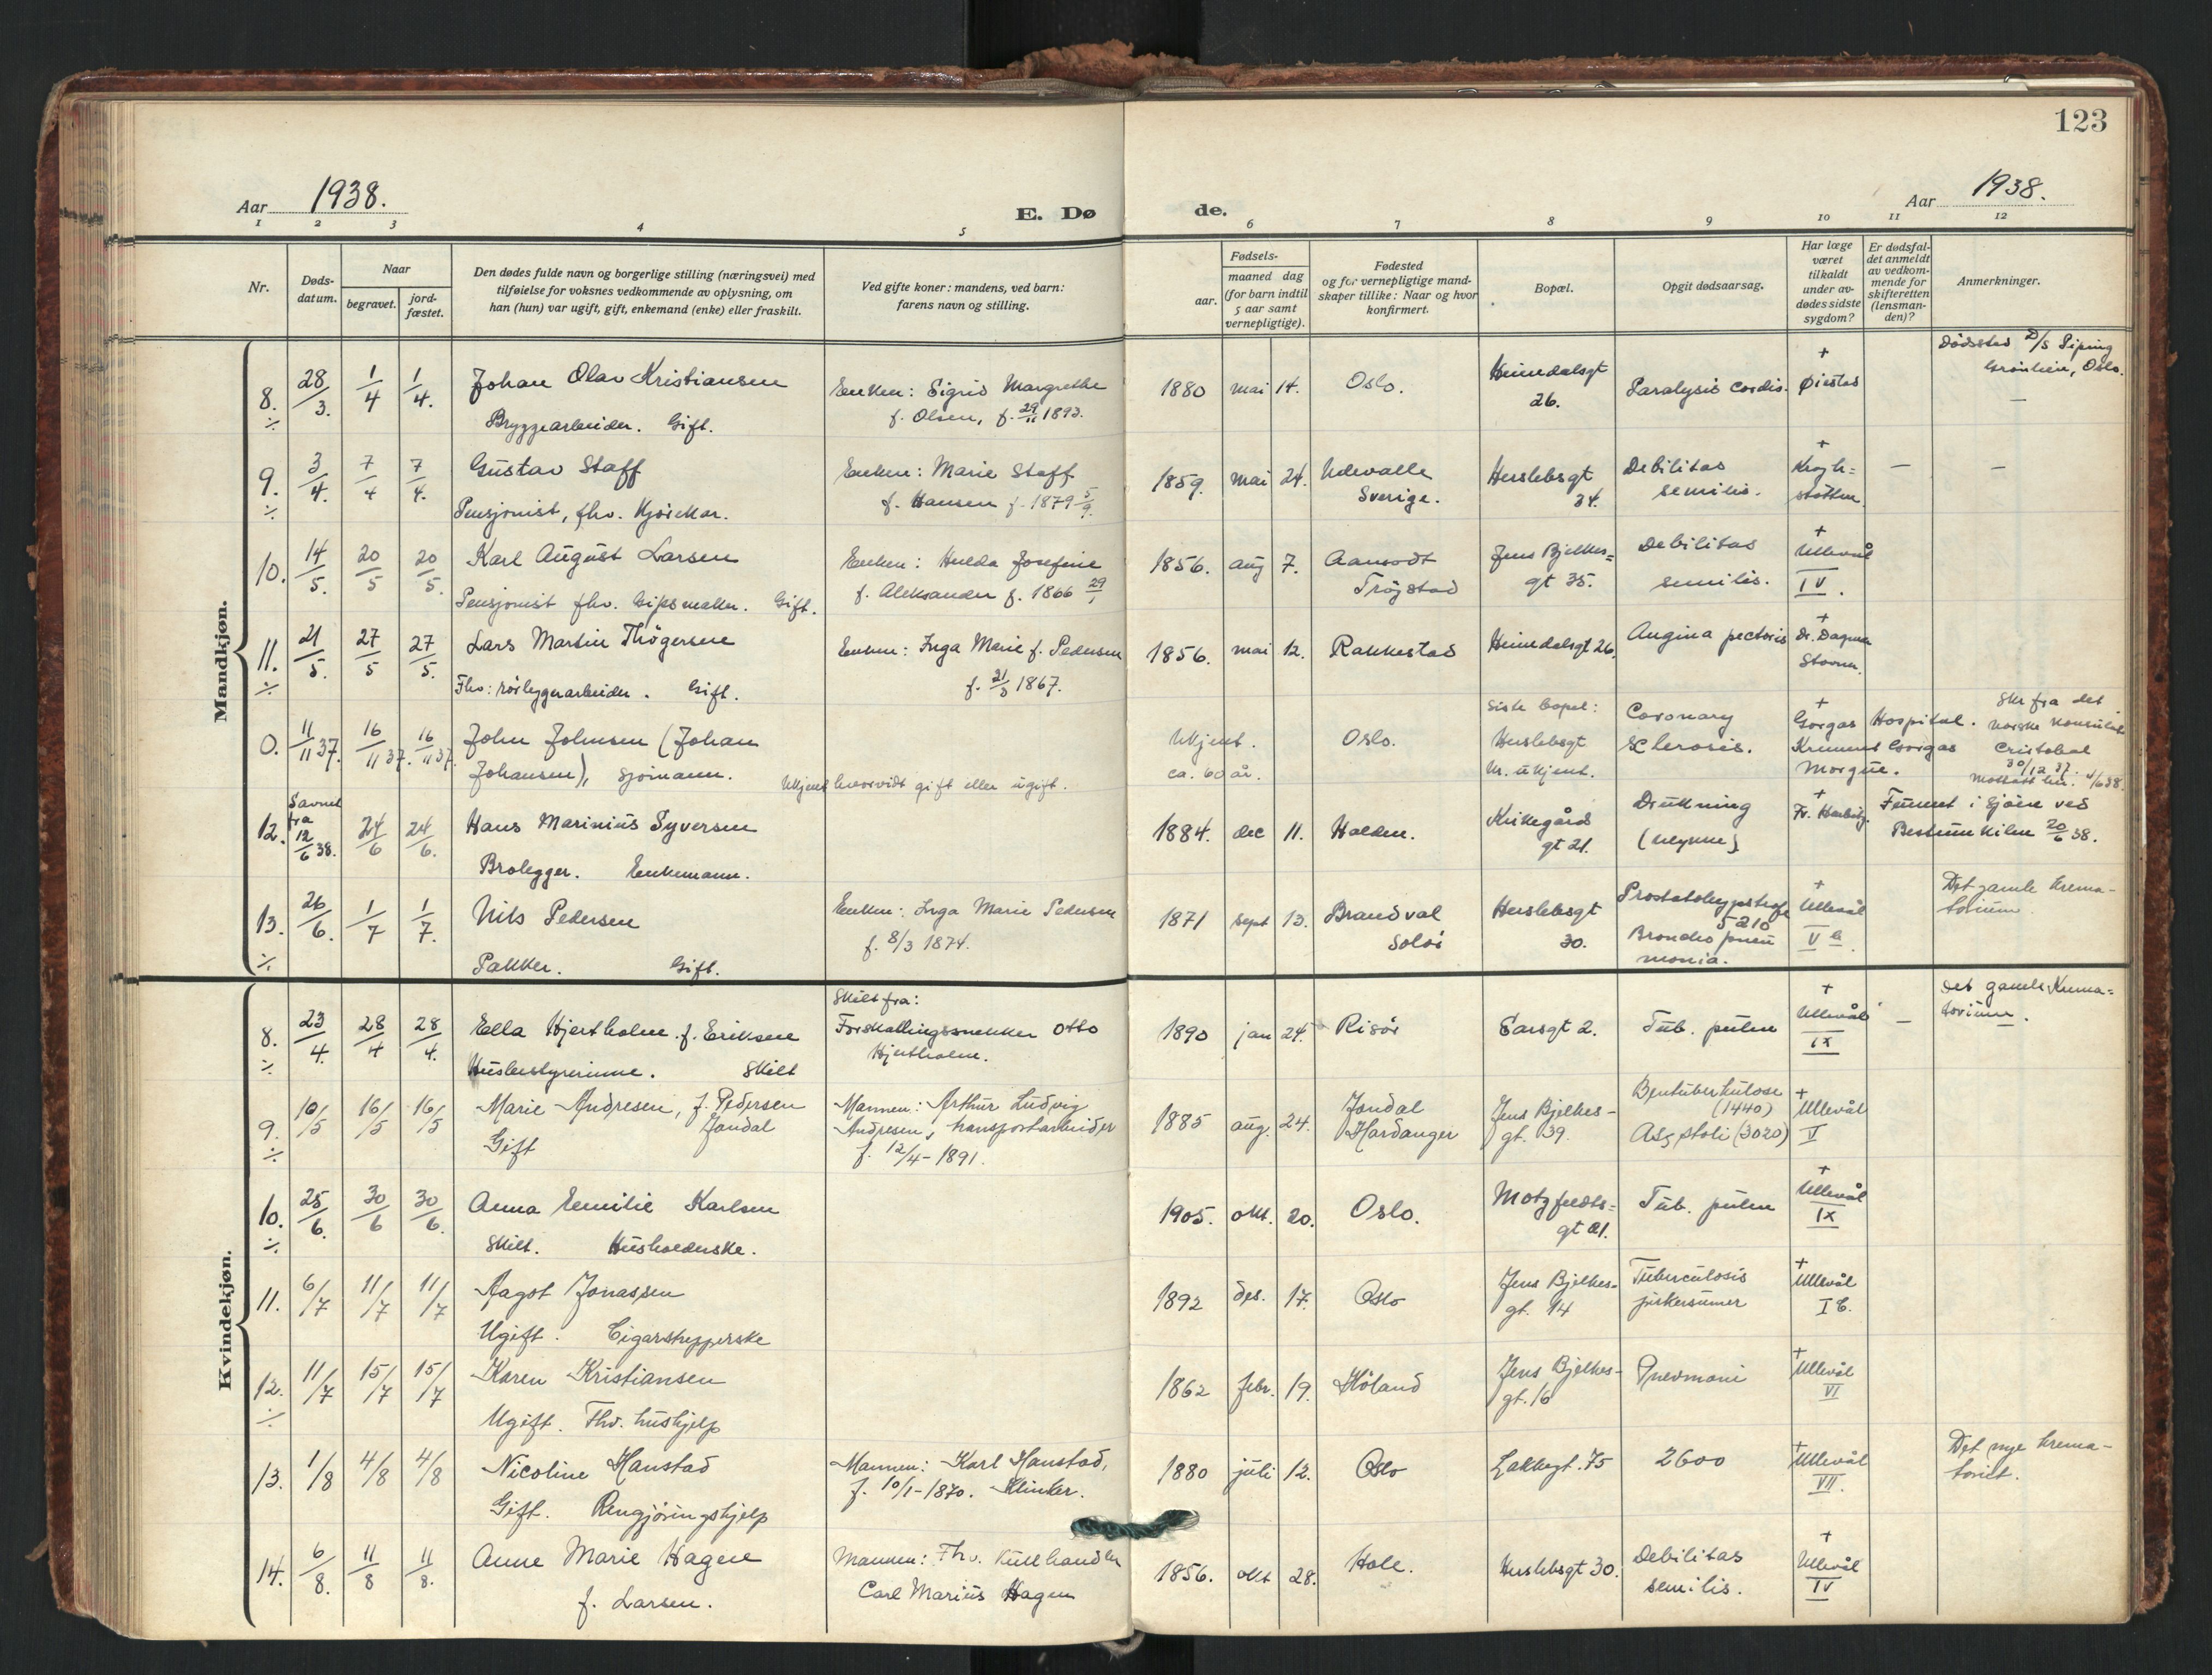 123
Aar 1938.
E. Dø
de.
Aar 1938.
1 2 3 4 5 6 7 8 9 10 11 12
Nr.
Døds-
datum.
Naar
begravet.
jord-
fæstet.
Den dødes fulde navn og borgerlige stilling (næringsvei) med
tilføielse for voksnes vedkommende av oplysning, om
han (hun) var ugift, gift, enkemand (enke) eller fraskilt.
Ved gifte koner: mandens, ved barn:
farens navn og stilling.
Fødsels-
aar.
maaned dag
(for barn indtil
5 aar samt
vernepligtige).
Fødested
og for vernepligtige mand-
skaper tillike: Naar og hvor
konfirmert.
Bopæl.
Opgit dødsaarsag.
Har læge
været
tilkaldt
under av-
dødes sidste
sygdom?
Er dødsfal-
det anmeldt
av vedkom-
mende for
skifteretten
(lensman-
den)?
Anmerkninger.
Mandkjøn.
8. 28/3. 1/4 1/4. Johan Olav Kristiansen
Bryggearbeider. Gift.
Enken: Sigrid Margrethe
f. Olsen, f. 29/11 1893.
1880 mai 14. Oslo.
Heimdalsgt
26.
Paralysis cordis.
+
Øiestad
Dödssted D/S Piping
Grönlien, Oslo.
9. 3/4. 7/4 7/4. Gustav Staff
Pensjonist, fhv.
Enken: Marie Staff
f. Hansen f. 1879 5/9.
1859. mai 24. Udevalle
Sverige.
Herslebsgt
34.
Debilitas
senilis.
+
Krogh=
støtten
— —
10. 14/5. 20/5 20/5. Karl August Larsen
Pensjonist fhv. Gipsmaker. Gift.
Enken: Hulda Josefine
f. Aleksander f. 1866 29/1
1856. aug 7. Aamodt
Trøgstad
Jens Bjelkes=
gt 35.
Debilitas
senilis.
+
Ullevål
IV.
11. 21/5. 27/5 27/5. Lars Martin Thögersen
Fhv: Gift.
Enken: Inga Marie f. Pedersen
f. 21/3 1867.
1856. mai 12. Rakkestad
Heimdalsgt 26.
Angina pectoris
+
Dr. Dagmar
0. 11/11 37. 16/11 37. 16/11 37. John Johnsen (Johan
Johansen), sjömann. Ukjent hvorvidt gift eller ugift.
Ukjent.
ca. 60 år.
Oslo.
Siste bopel:
Herslebsgt
Nr. ukjent.
Coronary
Sclerosis.
+
Gorgas Hospital.
Gorgas
Morgue.
Skr fra det
norske konsulat
Cristobal
30/12 37.
12. Savnet
fra
12/6 38. 24/6 24/6. Hans Marinius Syversen
Brolegger. Enkemann.
1884. dec 11. Halden.
Kirkegårds
gt 21.
Drukning
(ulykke)
+
Funnet i sjöen ved
Bestumkilen 20/6 38.
13. 26/6. 1/7 1/7. Nils Pedersen
Pakker. Gift.
Enken: Inga Marie Pedersen
f. 8/3 1874.
1871 sept 13. Brandval
Solör
Herslebsgt
30.
Prostatahypertrofi
5210
Broncho pneu
monia.
+
Ullevål
V
Det gamle krema-
torium.
Kvindekjøn.
8. 23/4. 28/4 28/4. Ella Hjertholm. f. Eriksen
Husbestyrerinne. Skilt
Skilt fra:
Forskallingssnekker Otto
Hjertholm.
1890 jan 24. Risör
Sarsgt 2.
Tub. pulm
+
Ullevål
IX
—
Det gamle Krema=
torium.
9. 10/5 16/5 16/5 Marie Andresen, f. Pedersen
Jondal
Gift
Mannen: Arthur Ludvig
Andresen, transportarbeider
f. 12/4-1891.
1885 aug. 24. Jondal
Hardanger
Jens Bjelkes-
gt. 39.
Bentuberkulose
(1440)
(3020)
+
Ullevål
V
10. 25/6. 30/6 30/6. Anna Emilie Karlsen
Skilt. Husholderske.
1905. okt. 20. Oslo.
Motzfeldts=
gt 21.
Tub. pulm
+
Ullevål
IX
11. 6/7 11/7 11/7 Aagot Jonassen
Ugift.
1892 des. 17. Oslo
Jens Bjelkes-
gt. 14
Tuberculosis
+
Ullevål
I
12. 11/7 15/7 15/7 Karen Kristiansen
Ugift. Fhv. hushjelp
1862 febr. 19. Höland
Jens Bjelkes-
gt. 16
Pnevmoni
+
Ullevål
VI
13. 1/8 4/8 4/8 Nicoline Hanstad
Gift. Rengjøringshjelp
Mannen: Karl Hanstad,
f. 10/1-1870.
1880 juli 12. Oslo
Lakkegt. 75
2600
+
Ullevål
VII.
Det nye krema-
toriet.
14. 6/8. 11/8 11/8. Anne Marie Hagen
f. Larsen.
Mannen: Fhv. kullhandler
Carl Marius Hagen
1856. okt 28. Hole.
Herslebsgt 30.
Debilitas
senilis.
+
Ullevål
IV